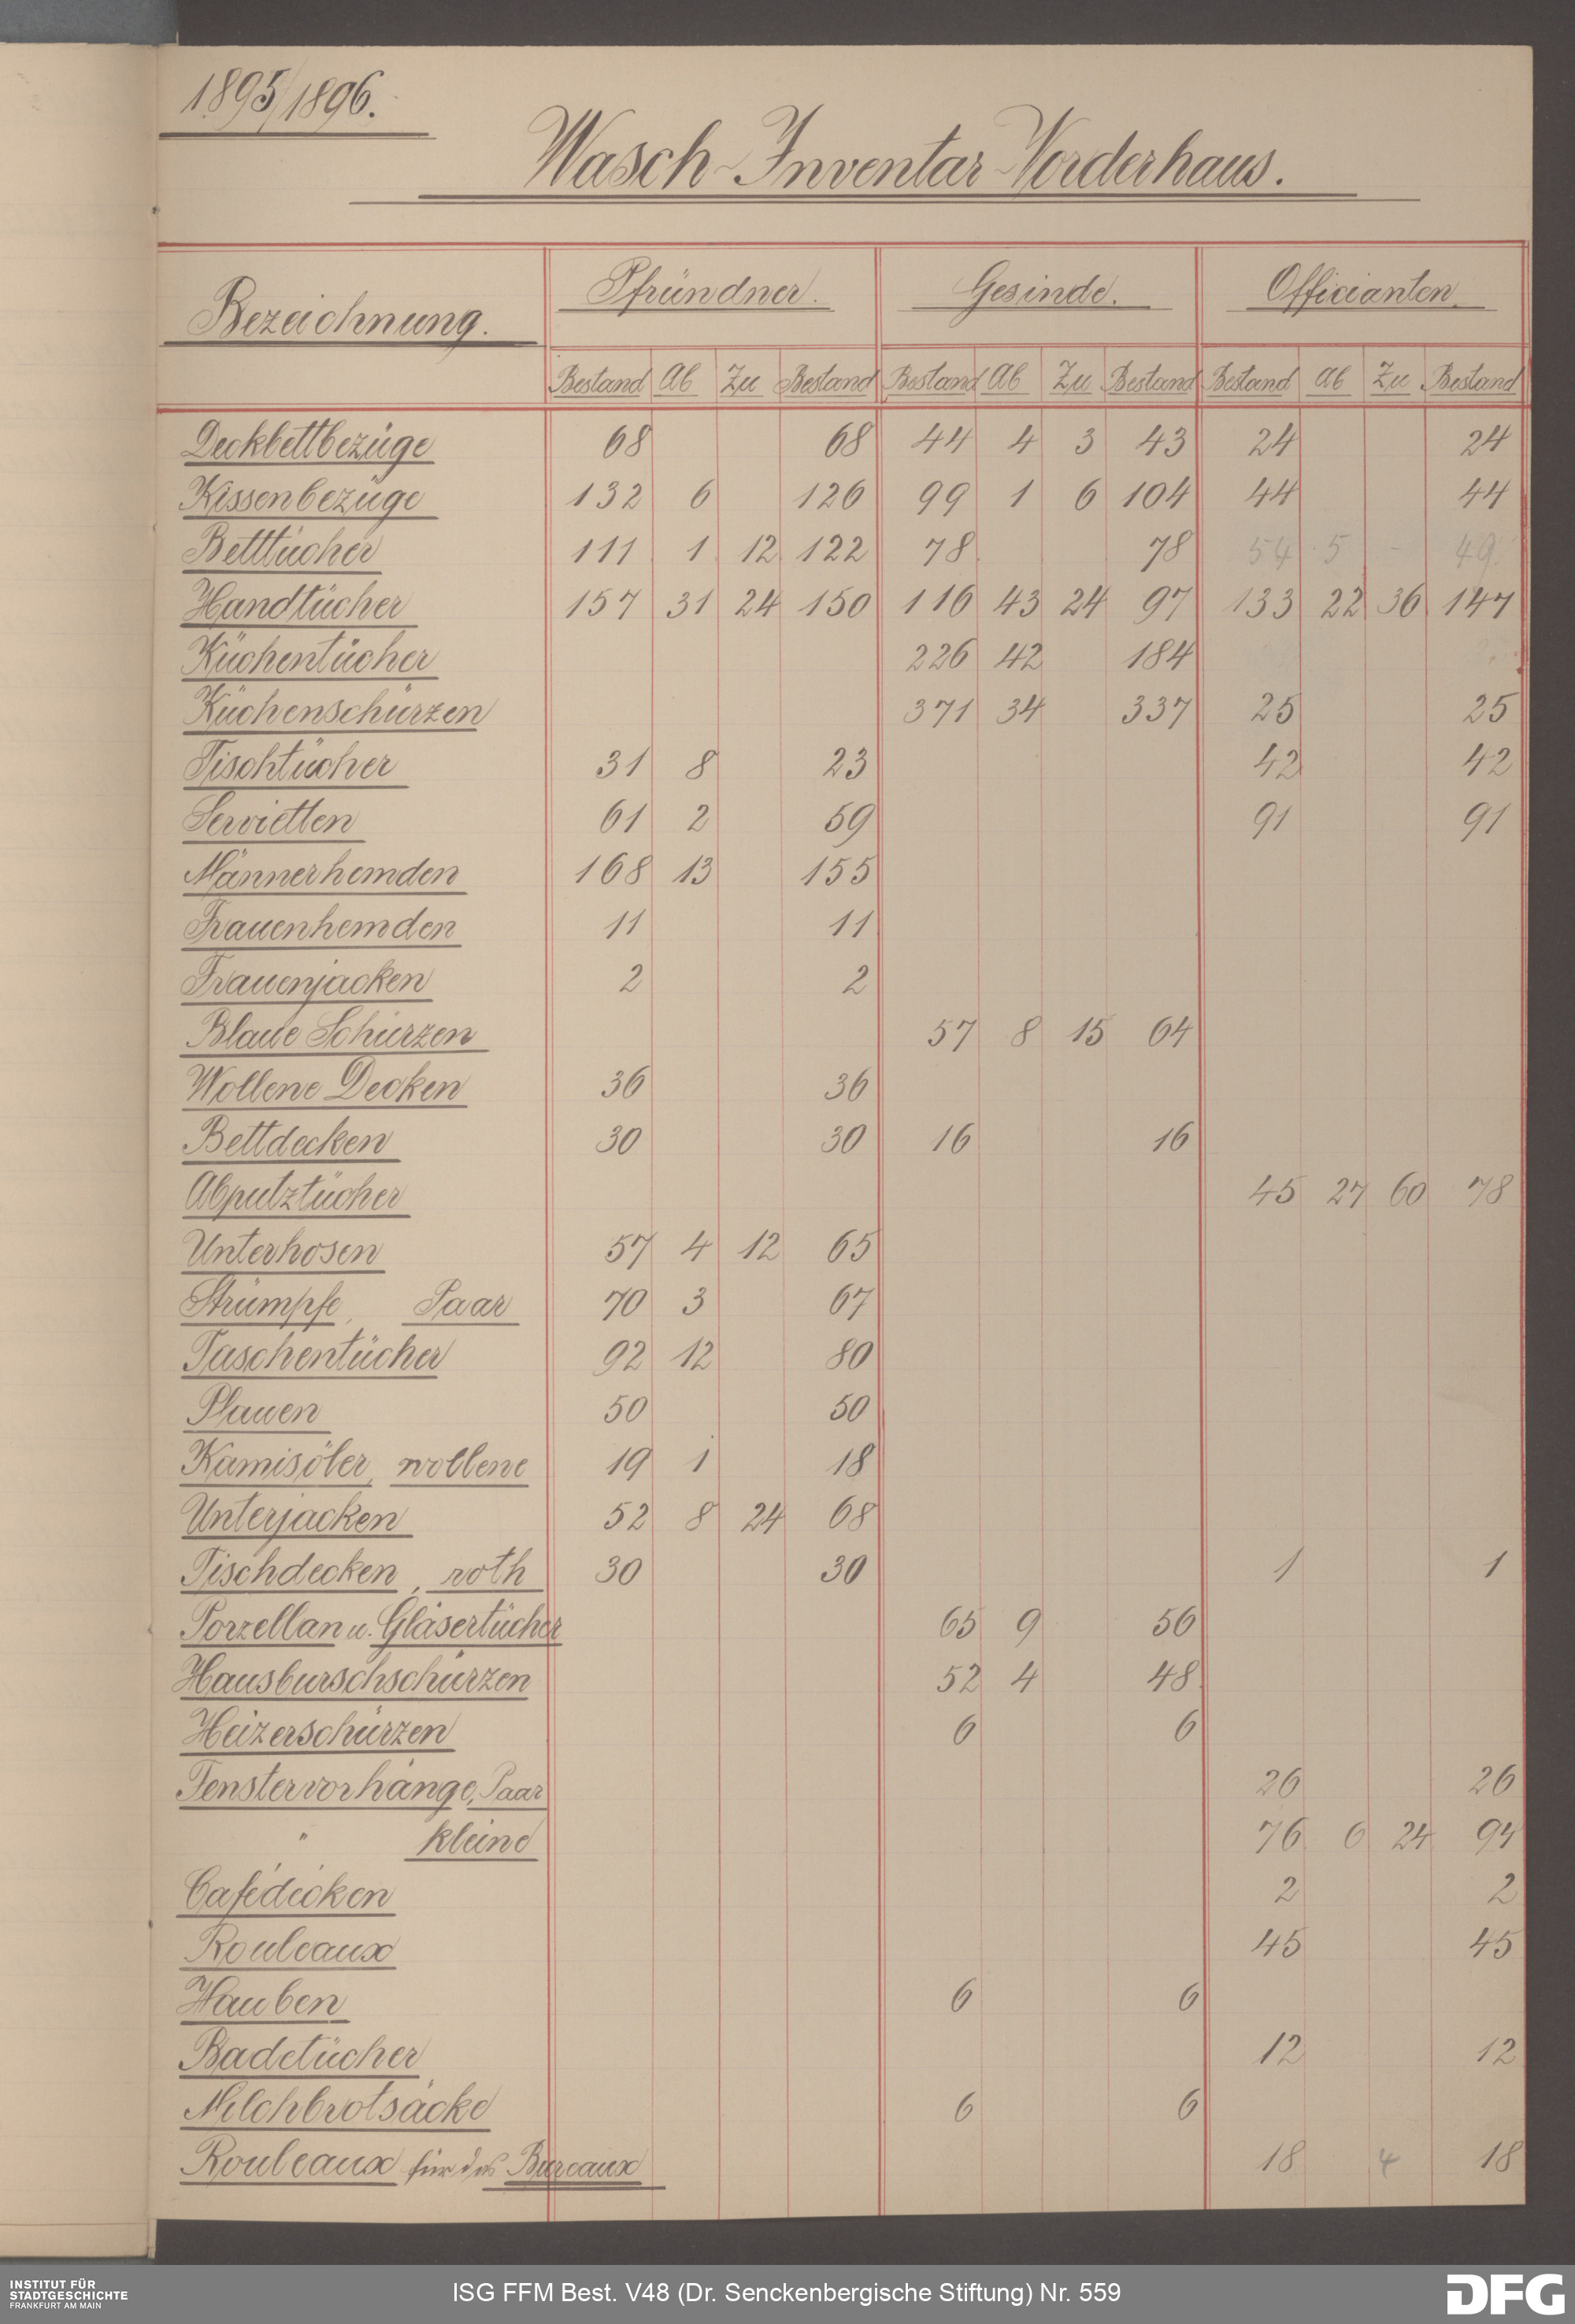 1895/1896.
Wasch-Inventar-Vorderhaus.
Bezeichnung. Pfründner. Gesinde. Officianten.
Bestand Ab Zu Bestand Bestand Ab Zu Bestand Bestand Ab Zu Bestand
Deckbettbezüge 68 68 44 4 3 43 24 24
Kissenbezüge 132 6 126 99 1 6 104 44 44
Betttücher 111 1 12 122 78 78 54 5 - 49
Handtücher 157 31 24 150 116 43 24 97 133 22 36 147
Küchentücher 226 42 184
Küchenschürzen 371 34 337 25 25
Tischtücher 31 8 23 42 42
Servietten 61 2 59 91 91
Männerhemden 168 13 155
Frauenhemden 11 11
Frauenjacken 2 2
Blaue Schürzen 57 8 15 64
Wollene Decken 36 36
Bettdecken 30 30 16 16
Abputztücher 45 27 60 78
Unterhosen 57 4 12 65
Strümpfe, Paar 70 3 67
Taschentücher 92 12 80
Plauen 50 50
Kamisöler, wollene 19 1 18
Unterjacken 52 8 24 68
Tischdecken, roth 30 30 1 1
Porzellan u. Gläsertücher 65 9 56
Hausburschschürzen 52 4 48
Heizerschürzen 6 6
Fenstervorhänge, Paar 26 26
" kleine 76 6 24 94
Cafédecken 2 2
Rouleaux 45 45
Hauben 6 6
Badetücher 12 12
Milchbrotsäcke 6 6
Rouleaux für das Bureaux 18 4 18
INSTITUT FÜR
STADTGESCHICHTE
FRANKFURT AM MAIN
ISG FFM Best. V48 (Dr. Senckenbergische Stiftung) Nr. 559
DFG